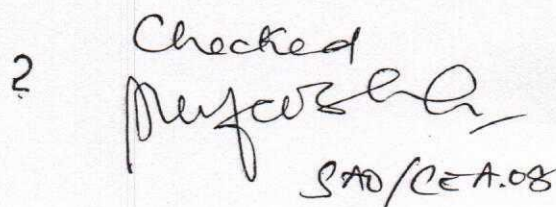 Checked
?
SAO/CEA.08